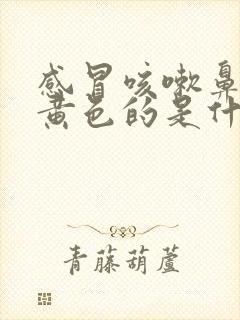 感冒咳嗽鼻
黄色的是什
青藤葫蘆